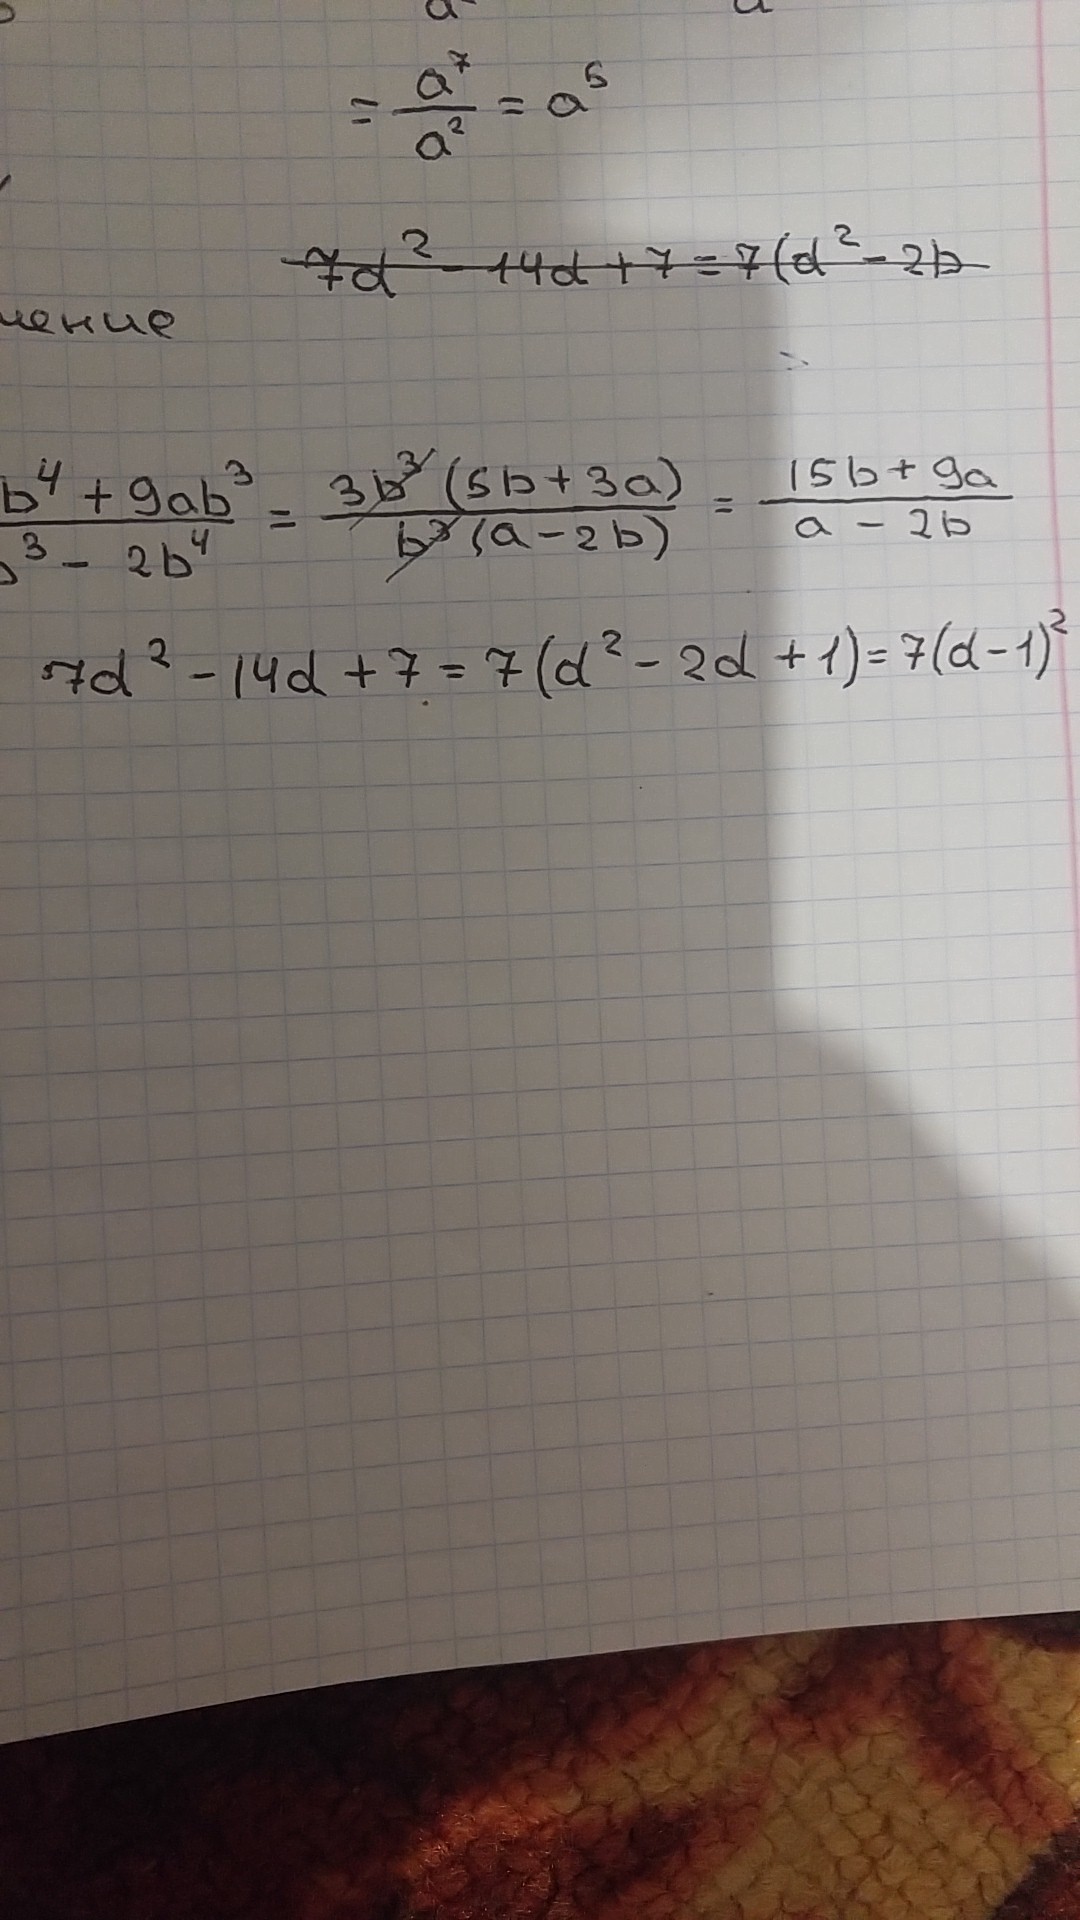 = a⁷/a² = a⁵
7d² - 14d + 7 = 7(d² - 2b
чение
b⁴ + 9ab³/³ - 2b⁴ = 3b³(5b + 3a)/b³(a - 2b) = 15b + 9a/a - 2b
7d² - 14d + 7 = 7(d² - 2d + 1) = 7(d - 1)²